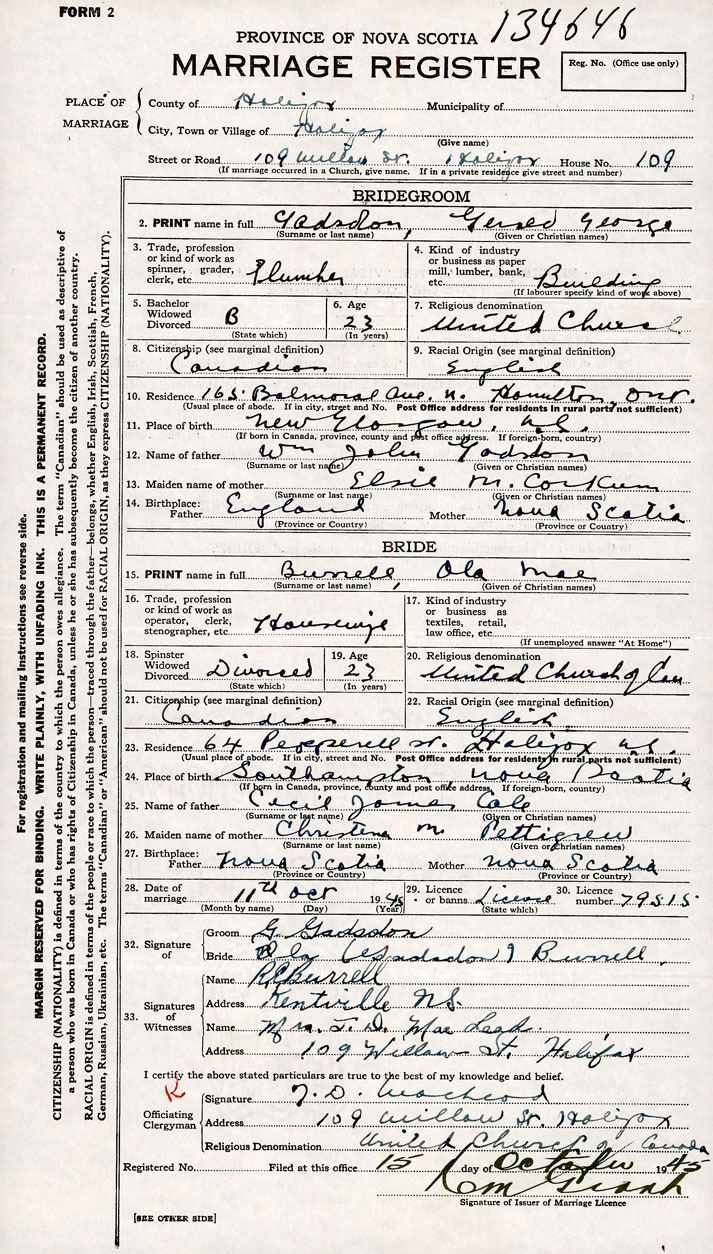 FORM 2
134646
PROVINCE OF NOVA SCOTIA
MARRIAGE REGISTER
Reg. No. (Office use only)
PLACE OF MARRIAGE
County of Halifax Municipality of
City, Town or Village of Halifax
(Give name)
Street or Road 109 Willow St. Halifax House No. 109
(If marriage occurred in a Church, give name. If in a private residence give street and number)
BRIDEGROOM
2. PRINT name in full Gadsdon, Gerald George
(Surname or last name) (Given or Christian names)
3. Trade, profession or kind of work as spinner, grader, clerk, etc. Plumber
4. Kind of industry or business as paper mill, lumber, bank, etc. Building
(If labourer specify kind of work above)
5. Bachelor Widowed Divorced B
(State which)
6. Age 23
(In years)
7. Religious denomination United Church
8. Citizenship (see marginal definition) Canadian
9. Racial Origin (see marginal definition) English
10. Residence 165 Balmoral Ave. N. Hamilton, Ont.
(Usual place of abode. If in city, street and No. Post Office address for residents in rural parts not sufficient)
11. Place of birth New Glasgow, N.S.
(If born in Canada, province, county and post office address. If foreign-born, country)
12. Name of father Wm John Gadsdon
(Surname or last name) (Given or Christian names)
13. Maiden name of mother Elsie M. Corkum
(Surname or last name) (Given or Christian names)
14. Birthplace: Father England Mother Nova Scotia
(Province or Country) (Province or Country)
BRIDE
15. PRINT name in full Burrell, Ola Mae
(Surname or last name) (Given or Christian names)
16. Trade, profession or kind of work as operator, clerk, stenographer, etc. Housewife
17. Kind of industry or business as textiles, retail, law office, etc.
(If unemployed answer "At Home")
18. Spinster Widowed Divorced Divorced
(State which)
19. Age 23
(In years)
20. Religious denomination United Church of Can
21. Citizenship (see marginal definition) Canadian
22. Racial Origin (see marginal definition) English
23. Residence 64 Pepperell St. Halifax N.S.
(Usual place of abode. If in city, street and No. Post Office address for residents in rural parts not sufficient)
24. Place of birth Southampton, Nova Scotia
(If born in Canada, province, county and post office address. If foreign-born, country)
25. Name of father Cecil James Cole
(Surname or last name) (Given or Christian names)
26. Maiden name of mother Christena M Pettigrew
(Surname or last name) (Given or Christian names)
27. Birthplace: Father Nova Scotia Mother Nova Scotia
(Province or Country) (Province or Country)
28. Date of marriage 11th Oct 1945
(Month by name) (Day) (Year)
29. Licence or banns License
(State which)
30. Licence number 79515
32. Signature of
Groom G. Gadsdon
Bride Ola Gadsdon Burrell
33. Signatures of Witnesses
Name Burrell
Address Kentville N.S.
Name Mrs. T. D. MacLeod
Address 109 Willow St. Halifax
I certify the above stated particulars are true to the best of my knowledge and belief.
K
Officiating Clergyman
Signature T. D. MacLeod
Address 109 Willow St. Halifax
Religious Denomination United Church of Canada
Registered No. Filed at this office 15 day of October 1945
Signature of Issuer of Marriage Licence
[SEE OTHER SIDE]
For registration and mailing instructions see reverse side.
MARGIN RESERVED FOR BINDING. WRITE PLAINLY, WITH UNFADING INK. THIS IS A PERMANENT RECORD.
CITIZENSHIP (NATIONALITY) is defined in terms of the country to which the person owes allegiance. The term "Canadian" should be used as descriptive of
a person who was born in Canada or who has rights of Citizenship in Canada, unless he or she has subsequently become the citizen of another country.
RACIAL ORIGIN is defined in terms of the people or race to which the person—traced through the father—belongs, whether English, Irish, Scottish, French,
German, Russian, Ukrainian, etc. The terms "Canadian" or "American" should not be used for RACIAL ORIGIN, as they express CITIZENSHIP (NATIONALITY).